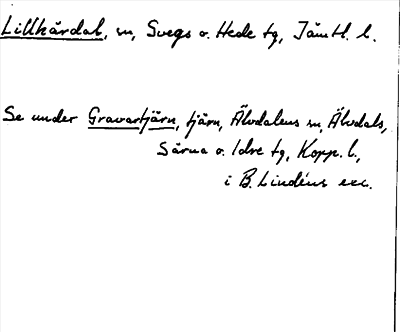 Lillhärdal, sn, Svegs o. Hede tg, Jämtl. l.
Se under Gravartjärn, tjärn, Älvdalens sn, Älvdals,
Särna o. Idre tg, Kopp. l.,
i B. Lindéns exc.